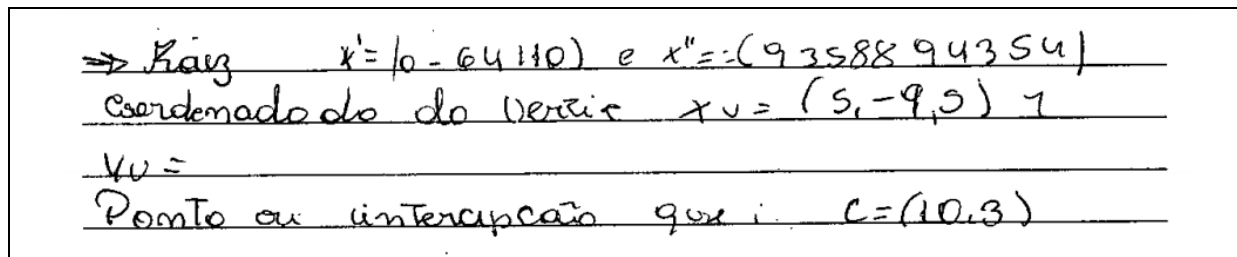 => Raiz x'=(0-64110) e x"=-(9 3588 94354)
Coordenado do do Vertic xv = (5,-9,5) 1
YV =
Ponto ou intercpcão que i. C=(10.3)